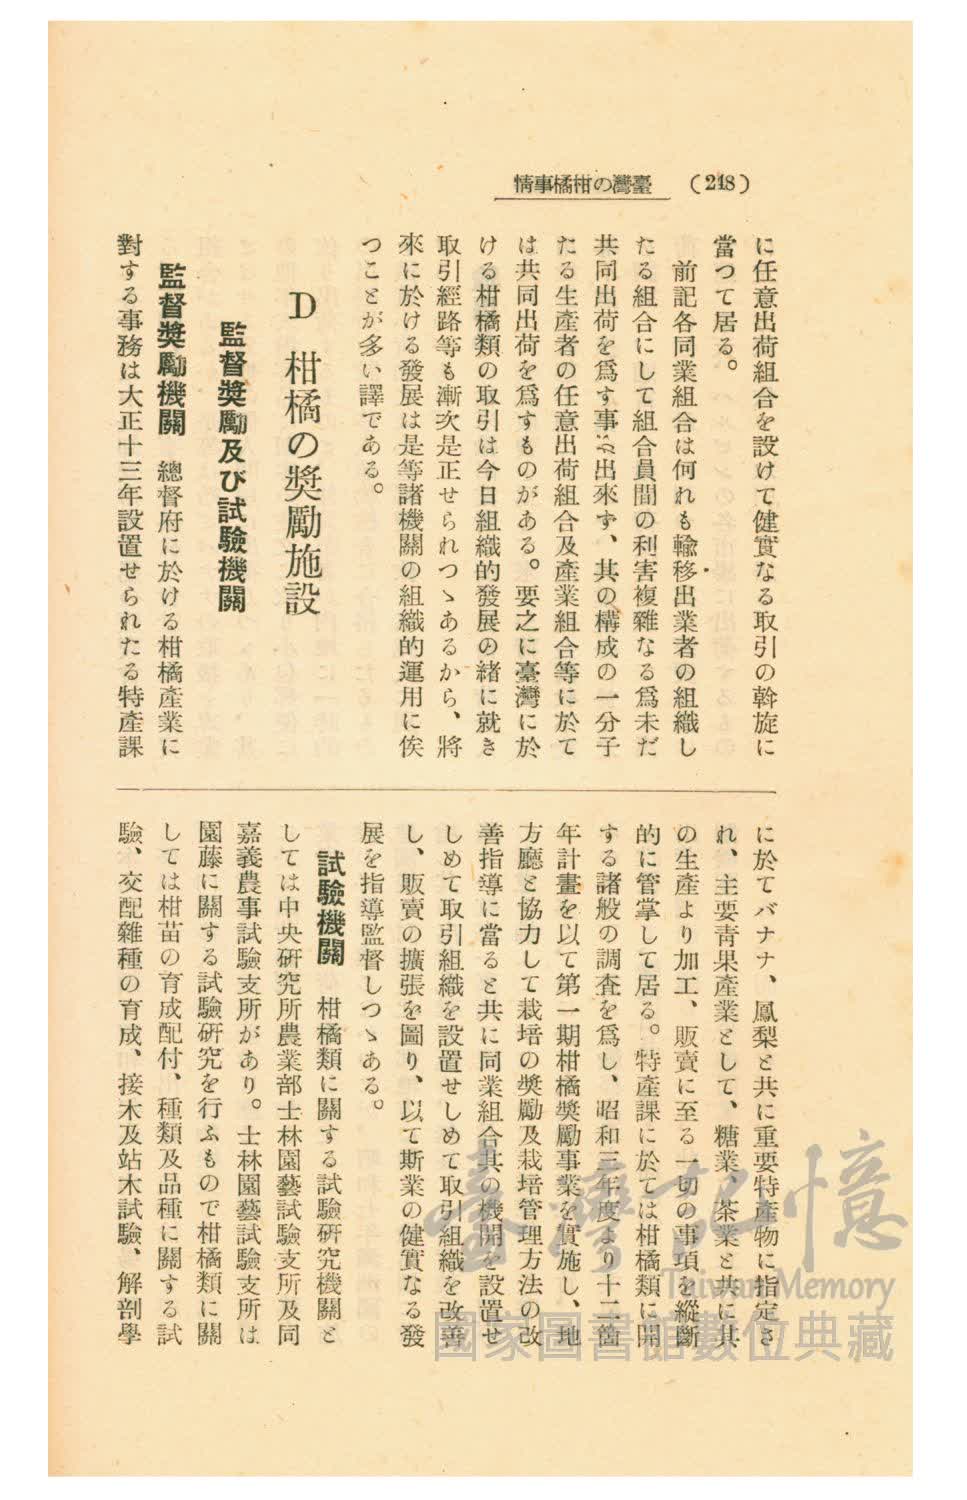 (218) 臺灣の柑橘事情
に任意出荷組合を設けて健實なる取引の斡旋に
當つて居る。
前記各同業組合は何れも輸移出業者の組織し
たる組合にして組合員間の利害複雜なる爲未だ
共同出荷を爲す事が出來ず、其の構成の一分子
たる生產者の任意出荷組合及產業組合等に於て
は共同出荷を爲すものがある。要之に臺灣に於
ける柑橘類の取引は今日組織的發展の緒に就き
取引經路等も漸次是正せられつゝあるから、將
來に於ける發展は是等諸機關の組織的運用に俟
つことが多い譯である。
D 柑橘の奬勵施設
監督奬勵及び試驗機關
監督奬勵機關 總督府に於ける柑橘產業に
對する事務は大正十三年設置せられたる特產課
に於てバナナ、鳳梨と共に重要特產物に指定さ
れ、主要靑果產業として、糖業、茶業と共に其
の生產より加工、販賣に至る一切の事項を縱斷
的に管掌して居る。特產課に於ては柑橘類に關
する諸般の調査を爲し、昭和三年度より十二箇
年計畫を以て第一期柑橘奬勵事業を實施し、地
方廳と協力して栽培の奬勵及栽培管理方法の改
善指導に當ると共に同業組合其の機關を設置せ
しめて取引組織を設置せしめて取引組織を改善
し、販賣の擴張を圖り、以て斯業の健實なる發
展を指導監督しつゝある。
試驗機關 柑橘類に關する試驗硏究機關と
しては中央硏究所農業部士林園藝試驗支所及同
嘉義農事試驗支所があり。士林園藝試驗支所は
園藤に關する試驗硏究を行ふもので柑橘類に關
しては柑苗の育成配付、種類及品種に關する試
驗、交配雜種の育成、接木及站木試驗、解剖學
臺灣記憶
Taiwan Memory
國家圖書館數位典藏